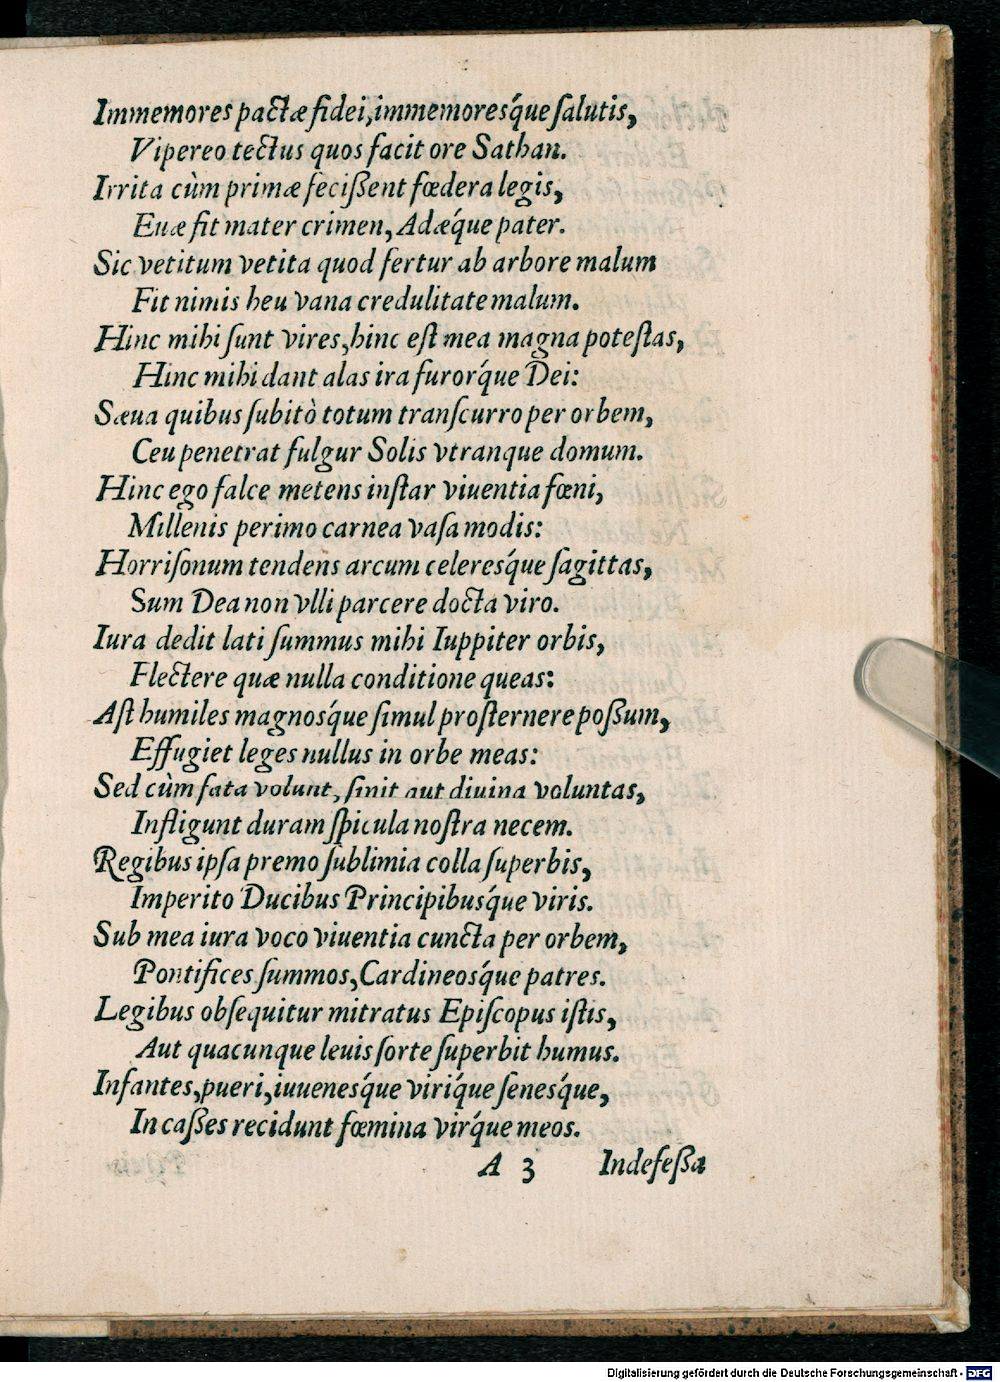 Immemores pactæ fidei, immemoresq́ue ſalutis,
Vipereo tectus quos facit ore Sathan.
Irrita cùm primæ feciſſent fœdera legis,
Euæ fit mater crimen, Adæq́ue pater.
Sic vetitum vetita quod fertur ab arbore malum
Fit nimis heu vana credulitate malum.
Hinc mihi ſunt vires, hinc eſt mea magna poteſtas,
Hinc mihi dant alas ira furorq́ue Dei:
Sæua quibus ſubitò totum tranſcurro per orbem,
Ceu penetrat fulgur Solis vtranque domum.
Hinc ego falce metens inſtar viuentia fœni,
Millenis perimo carnea vaſa modis:
Horriſonum tendens arcum celeresq́ue ſagittas,
Sum Dea non vlli parcere docta viro.
Iura dedit lati ſummus mihi Iuppiter orbis,
Flectere quæ nulla conditione queas:
Aſt humiles magnosq́ue ſimul proſternere poſſum,
Effugiet leges nullus in orbe meas:
Sed cùm fata volunt, ſinit aut diuina voluntas,
Infligunt duram ſpicula noſtra necem.
Regibus ipſa premo ſublimia colla ſuperbis,
Imperito Ducibus Principibusq́ue viris.
Sub mea iura voco viuentia cuncta per orbem,
Pontifices ſummos, Cardineosq́ue patres.
Legibus obſequitur mitratus Epiſcopus iſtis,
Aut quacunque leuis ſorte ſuperbit humus.
Infantes, pueri, iuuenesq́ue viriq́ue ſenesq́ue,
In caſſes recidunt fœmina virq́ue meos.
A 3 Indefeſſa
Digitalisierung gefördert durch die Deutsche Forschungsgemeinschaft - DFG